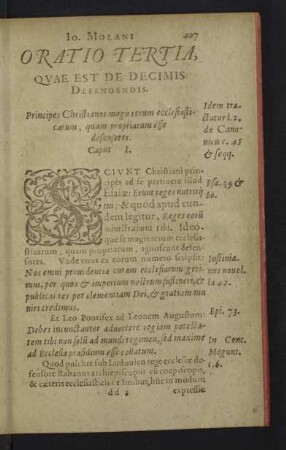 Io. MOLANI 407
ORATIO TERTIA,
QVAE EST DE DECIMIS
DEFENDENDIS.
Principes Christianos magis rerum ecclesiasti-
carum, quam propriarum esse
defensores.
Caput I.
Idem tra-
ctatur l. 2.
de Cano-
nicis c. 45
& seqq.
SCIVNT Christiani prin-
cipes ad se pertinere illud
Isaiæ: Erunt reges nutritij
tui; & quod apud eun-
dem legitur, Reges eorū
ministrabunt tibi. Ideo-
que se magis rerum ecclesia-
sticarum, quam propriarum, agnoscunt defen-
sores. Vnde vnus ex eorum numero scripsit:
Nos enim prouidentia curam ecclesiarum geri-
mus, per quos & imperium nostrum sustineri, &
publicas res per clementiam Dei, & gratiam mu-
niri credimus.
Esa. 49 &
60.
Iustinia-
nus nouel.
la 42.
Et Leo Pontifex ad Leonem Augustum:
Debes incunctanter aduertere regiam potesta-
tem tibi non solū ad mundi regimen, sed maxime
ad Ecclesiæ præsidium esse collatam.
Epi. 73.
Quod pulchre sub Ludouico rege ecclesiæ de-
fensore Rabanus archiepiscopus cū coepiscopis,
& cæteris ecclesiasticis ordinibus, hūc in modum
In Conc.
Mogunt.
c. 6.
dd 2 expresse